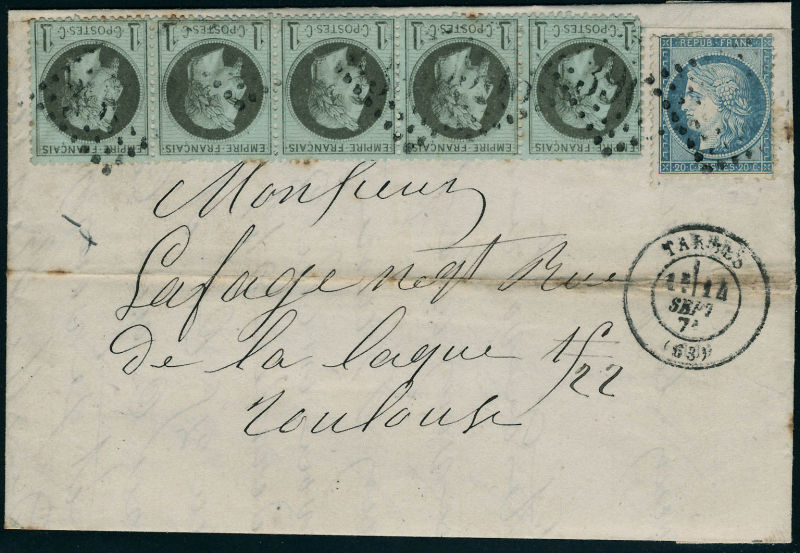 1 C·POSTES·C· 1 1 C·POSTES·C· 1 1 C·POSTES·C· 1 1 C·POSTES·C· 1 1 C·POSTES·C· 1
EMPIRE·FRANÇAIS EMPIRE·FRANÇAIS EMPIRE·FRANÇAIS EMPIRE·FRANÇAIS EMPIRE·FRANÇAIS
REPUB·FRANC
20 C·POSTES 20 C·
Monsieur
Lafage negt Rue
de la
Toulouse
TARBES
14
SEPT
(63)